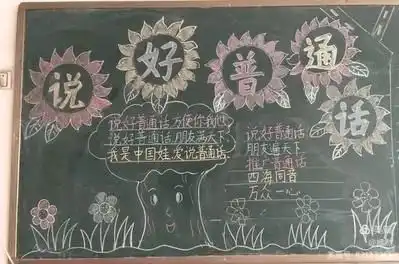 说好普通话
说好普通话方便你我他
说好普通话朋友遍天下
我是中国娃爱说普通话
说好普通话
朋友遍天下
推广普通话
四海同音
万众一心